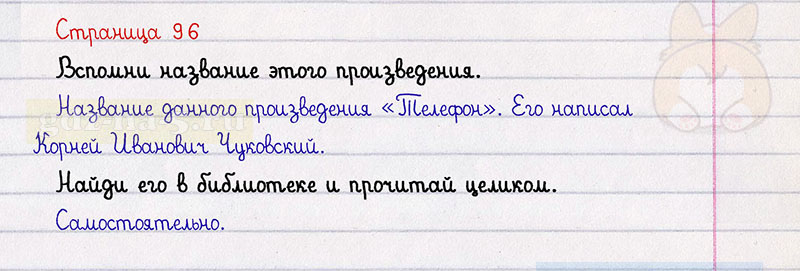 Страница 96
Вспомни название этого произведения.
Название данного произведения «Телефон». Его написал
Корней Иванович Чуковский.
Найди его в библиотеке и прочитай целиком.
Самостоятельно.